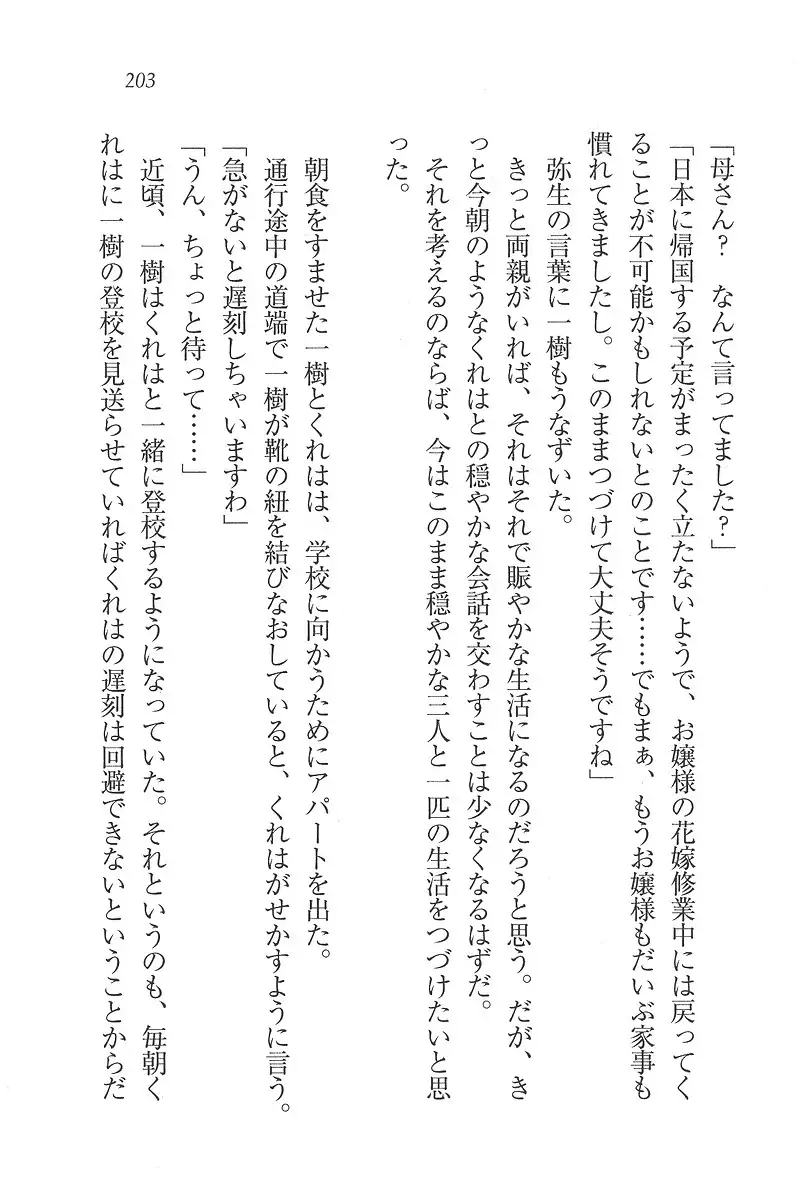 203
「母さん？　なんて言ってました？」
「日本に帰国する予定がまったく立たないようで、お嬢様の花嫁修業中には戻ってく
ることが不可能かもしれないとのことです……でもまぁ、もうお嬢様もだいぶ家事も
慣れてきましたし。このままつづけて大丈夫そうですね」
弥生の言葉に一樹もうなずいた。
きっと両親がいれば、それはそれで賑やかな生活になるのだろうと思う。だが、き
っと今朝のようなくれはとの穏やかな会話を交わすことは少なくなるはずだ。
それを考えるのならば、今はこのまま穏やかな三人と一匹の生活をつづけたいと思
った。
朝食をすませた一樹とくれはは、学校に向かうためにアパートを出た。
通行途中の道端で一樹が靴の紐を結びなおしていると、くれはがせかすように言う。
「急がないと遅刻しちゃいますわ」
「うん、ちょっと待って……」
近頃、一樹はくれはと一緒に登校するようになっていた。それというのも、毎朝く
れはに一樹の登校を見送らせていればくれはの遅刻は回避できないということからだ